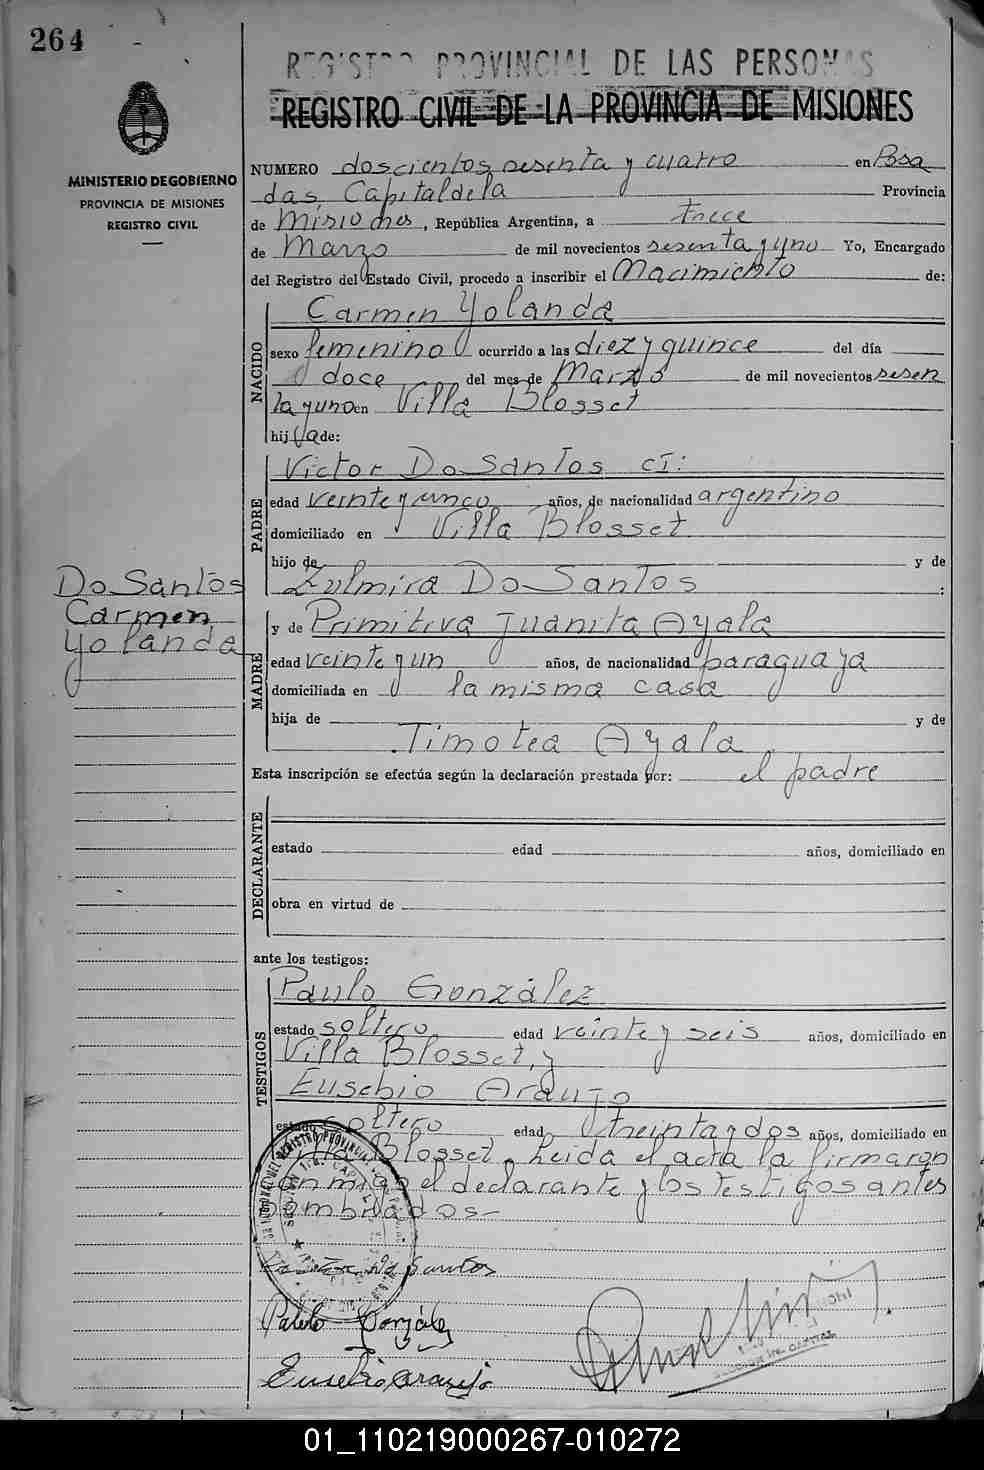 264
REGISTRO PROVINCIAL DE LAS PERSONAS
REGISTRO CIVIL DE LA PROVINCIA DE MISIONES
MINISTERIO DE GOBIERNO
PROVINCIA DE MISIONES
REGISTRO CIVIL
NUMERO doscientos sesenta y cuatro en Posa
das, Capital de la Provincia
de Misiones, República Argentina, a trece
de Marzo de mil novecientos sesenta y uno Yo, Encargado
del Registro del Estado Civil, procedo a inscribir el Nacimiento de:
NACIDO
Carmen Yolanda
sexo femenino ocurrido a las diez y quince del día
doce del mes de Marzo de mil novecientos sesen
ta y uno en Villa Blosset
hij a de:
PADRE
Victor Do Santos CI:
edad veinte y cinco años, de nacionalidad argentino
domiciliado en Villa Blosset
hijo de y de
Zulmira Do Santos :
Do Santos
Carmen
Yolanda
MADRE
y de Primitiva Juanita Ayala
edad veinte y un años, de nacionalidad paraguaya
domiciliada en la misma casa
hija de y de
Timotea Ayala
Esta inscripción se efectúa según la declaración prestada por: el padre
DECLARANTE
estado edad años, domiciliado en
obra en virtud de
ante los testigos:
TESTIGOS
Paulo González
estado soltero edad veinte y seis años, domiciliado en
Villa Blosset, y
Eusebio Araujo
estado soltero edad treinta y dos años, domiciliado en
Villa Blosset. Leida el acta la firmaron
conmigo el declarante y los testigos antes
nombrados-
Do Santos
Paulo González
Eusebio Araujo
01_110219000267-010272